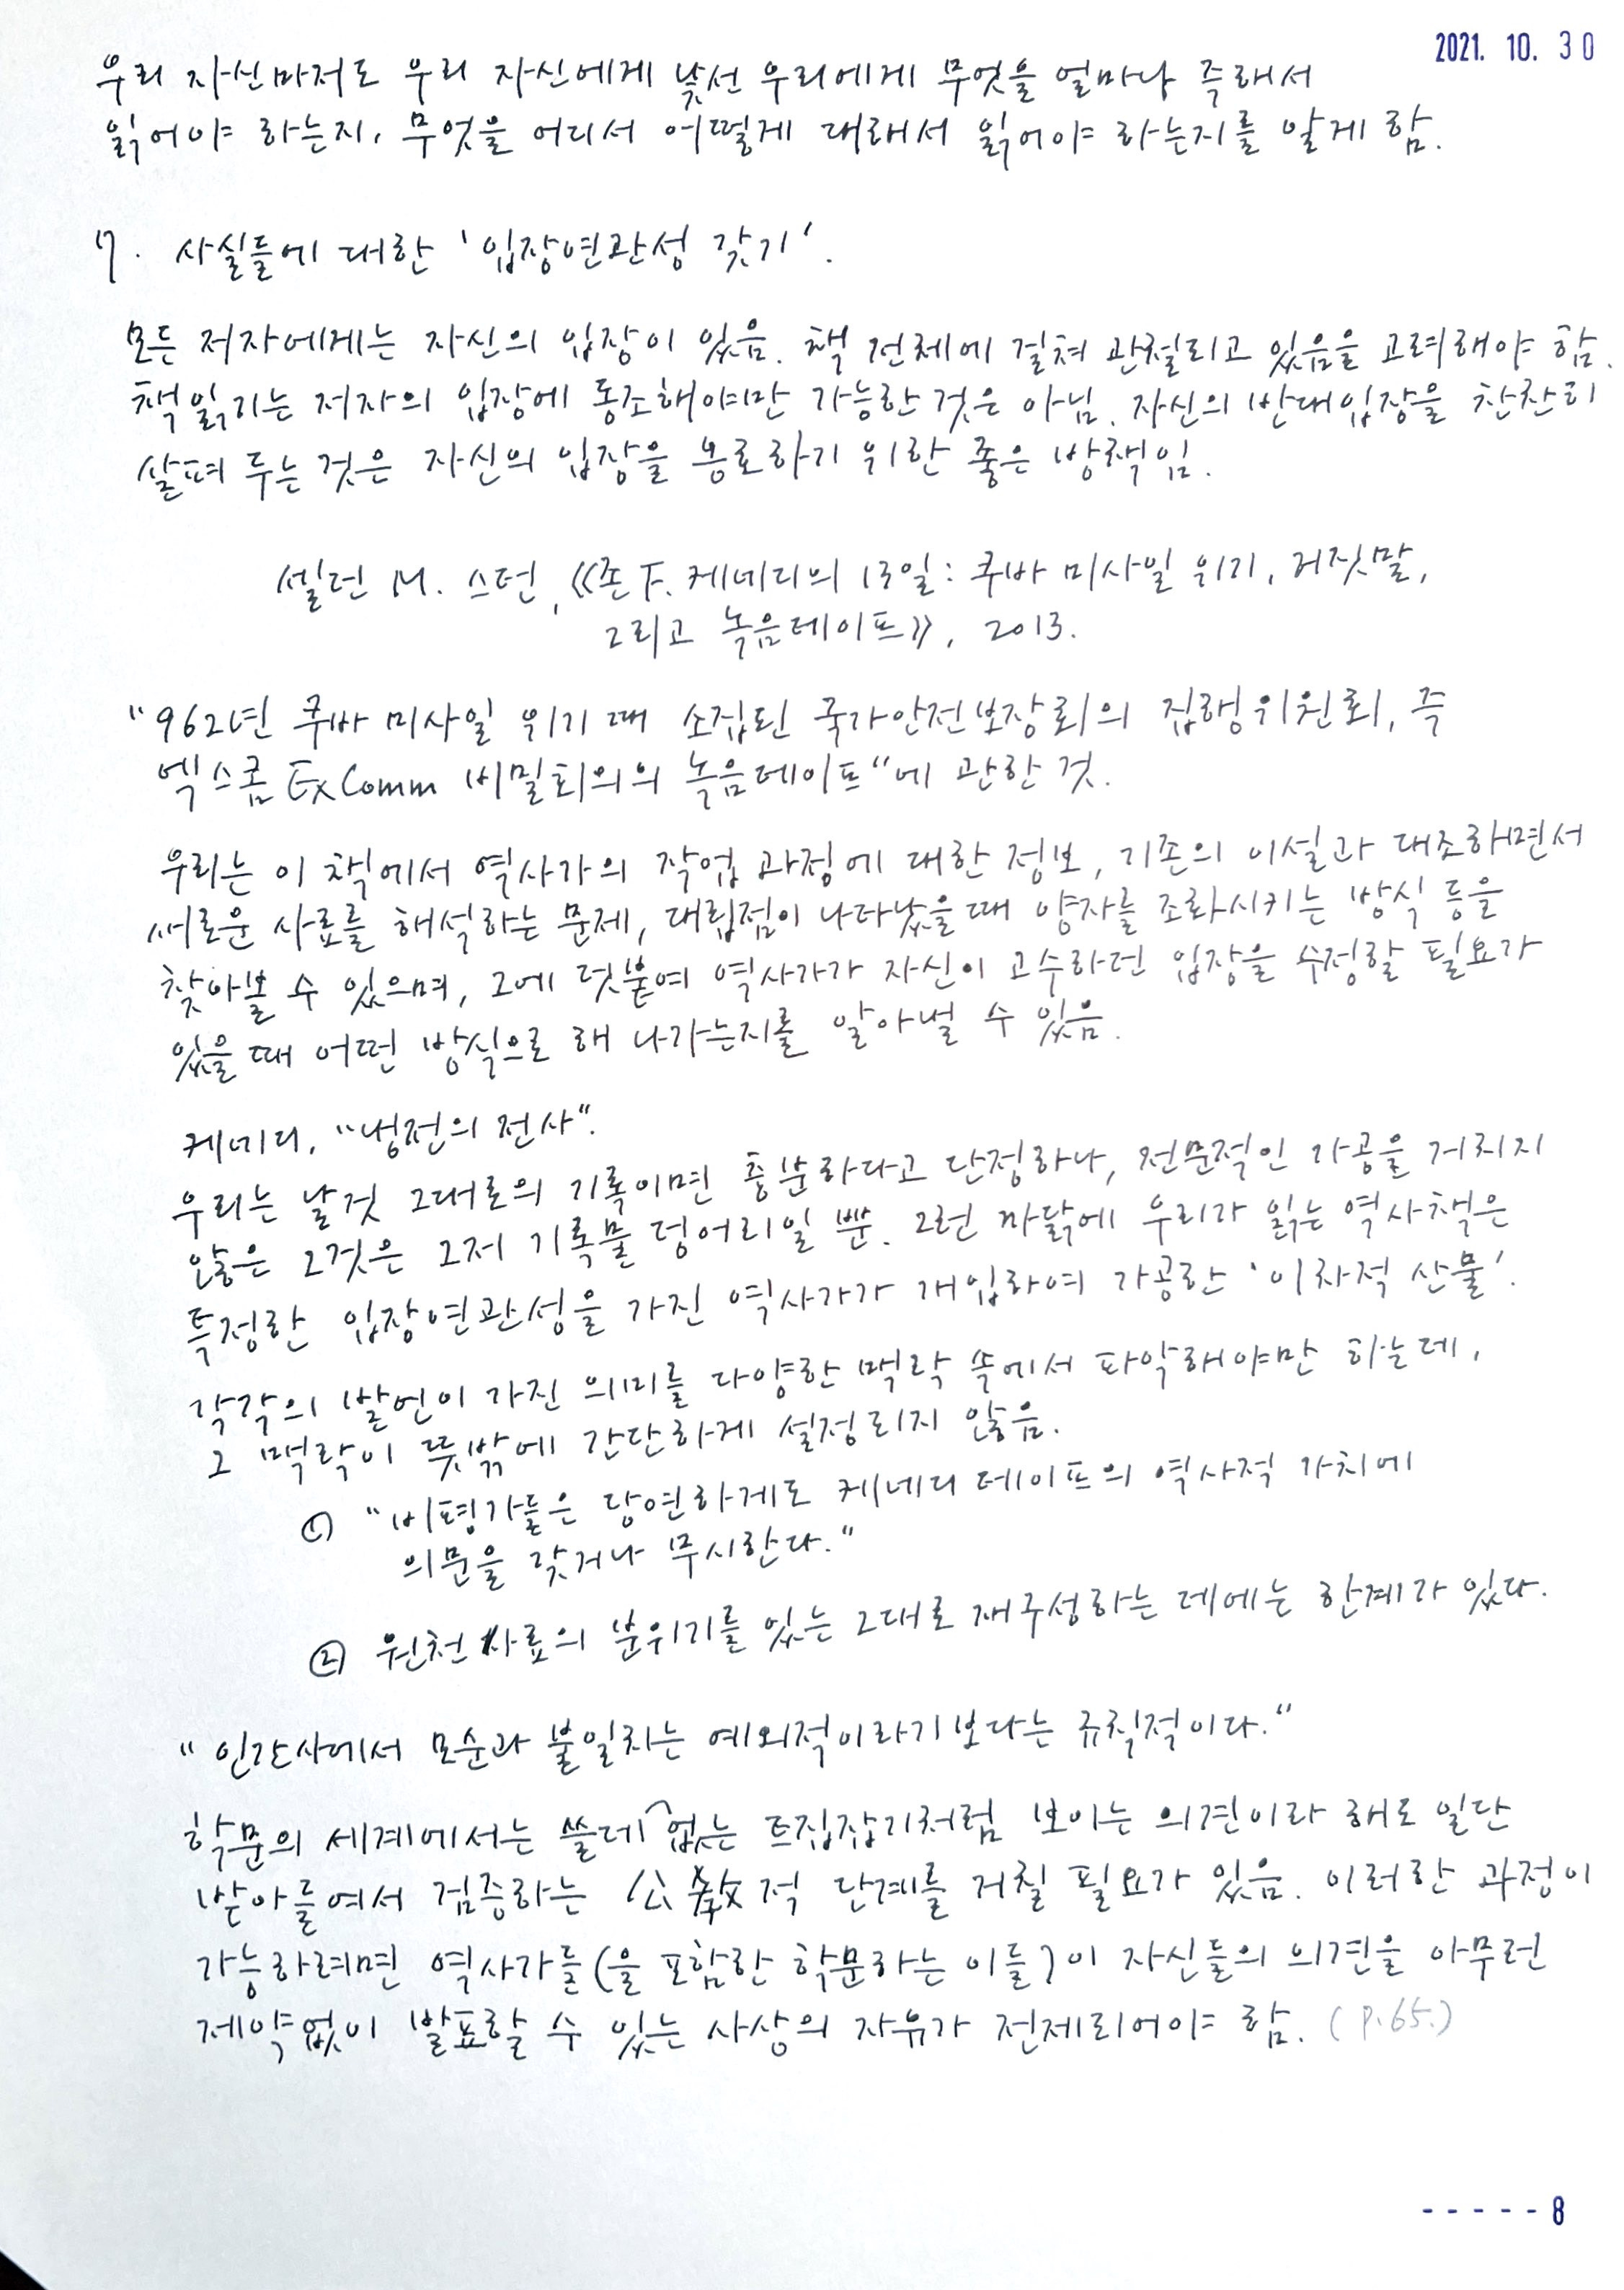 2021. 10. 30
우리 자신마저도 우리 자신에게 낯선 우리에게 무엇을 얼마나 즉해서
읽어야 하는지, 무엇을 어디서 어떻게 대해서 읽어야 하는지를 알게 함.
7. 사실들에 대한 '입장연관성 갖기'.
모든 저자에게는 자신의 입장이 있음. 책 전체에 걸쳐 관철되고 있음을 고려해야 함.
책읽기는 저자의 입장에 동조해야만 가능한 것은 아님. 자신의 반대입장을 찬찬히
살펴 두는 것은 자신의 입장을 옹호하기 위한 좋은 방책임.
셀던 M. 스턴, 《존 F. 케네디의 13일: 쿠바 미사일 위기, 거짓말,
그리고 녹음테이프》, 2013.
"962년 쿠바 미사일 위기 때 소집된 국가안전보장회의 집행위원회, 즉
엑스콤 ExComm 비밀회의의 녹음테이프"에 관한 것.
우리는 이 책에서 역사가의 작업 과정에 대한 정보, 기존의 이설과 대조하면서
새로운 사료를 해석하는 문제, 대립점이 나타났을 때 양자를 조화시키는 방식 등을
찾아볼 수 있으며, 그에 덧붙여 역사가가 자신이 고수하던 입장을 수정할 필요가
있을 때 어떤 방식으로 해 나가는지를 알아낼 수 있음.
케네디, "냉전의 전사".
우리는 날것 그대로의 기록이면 충분하다고 단정하나, 전문적인 가공을 거치지
않은 그것은 그저 기록물 덩어리일 뿐. 그런 까닭에 우리가 읽는 역사책은
특정한 입장연관성을 가진 역사가가 개입하여 가공한 '이차적 산물'.
각각의 발언이 가진 의미를 다양한 맥락 속에서 파악해야만 하는데,
그 맥락이 뜻밖에 간단하게 설정되지 않음.
① "비평가들은 당연하게도 케네디 테이프의 역사적 가치에
의문을 갖거나 무시한다."
② 원천 사료의 분위기를 있는 그대로 재구성하는 데에는 한계가 있다.
"인간사에서 모순과 불일치는 예외적이라기보다는 규칙적이다."
학문의 세계에서는 쓸데 없는 트집잡기처럼 보이는 의견이라 해도 일단
받아들여서 검증하는 公敎적 단계를 거칠 필요가 있음. 이러한 과정이
가능하려면 역사가들(을 포함한 학문하는 이들)이 자신들의 의견을 아무런
제약없이 발표할 수 있는 사상의 자유가 전제되어야 함. (p.65.)
- - - - - 8